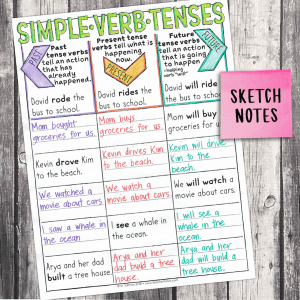 SIMPLE•VERB•TENSES
PAST
Past
tense verbs
tell an action
that has
already
happened.
Present tense
verbs tell what is
happening
now.
PRESENT
Future
tense verbs
tell an action
that is going
to happen
FUTURE
David rode the
bus to school.
David rides
the bus to
school.
David will ride
the bus to
school.
Mom bought
groceries for us.
Mom buys
groceries for us.
Mom will buy
groceries for us.
Kevin drove Kim
to the beach.
Kevin drives Kim
to the beach.
Kevin will drive
Kim to the
beach.
We watched a
movie about cars.
We watch a
movie about cars.
We will watch a
movie about cars.
I saw a whale in
the ocean
I see a whale in
the ocean.
I will see a
whale in the
ocean.
Arya and her dad
built a tree house.
Arya and her
dad build a tree
house.
Arya and her
dad will build a
tree house.
SKETCH
NOTES